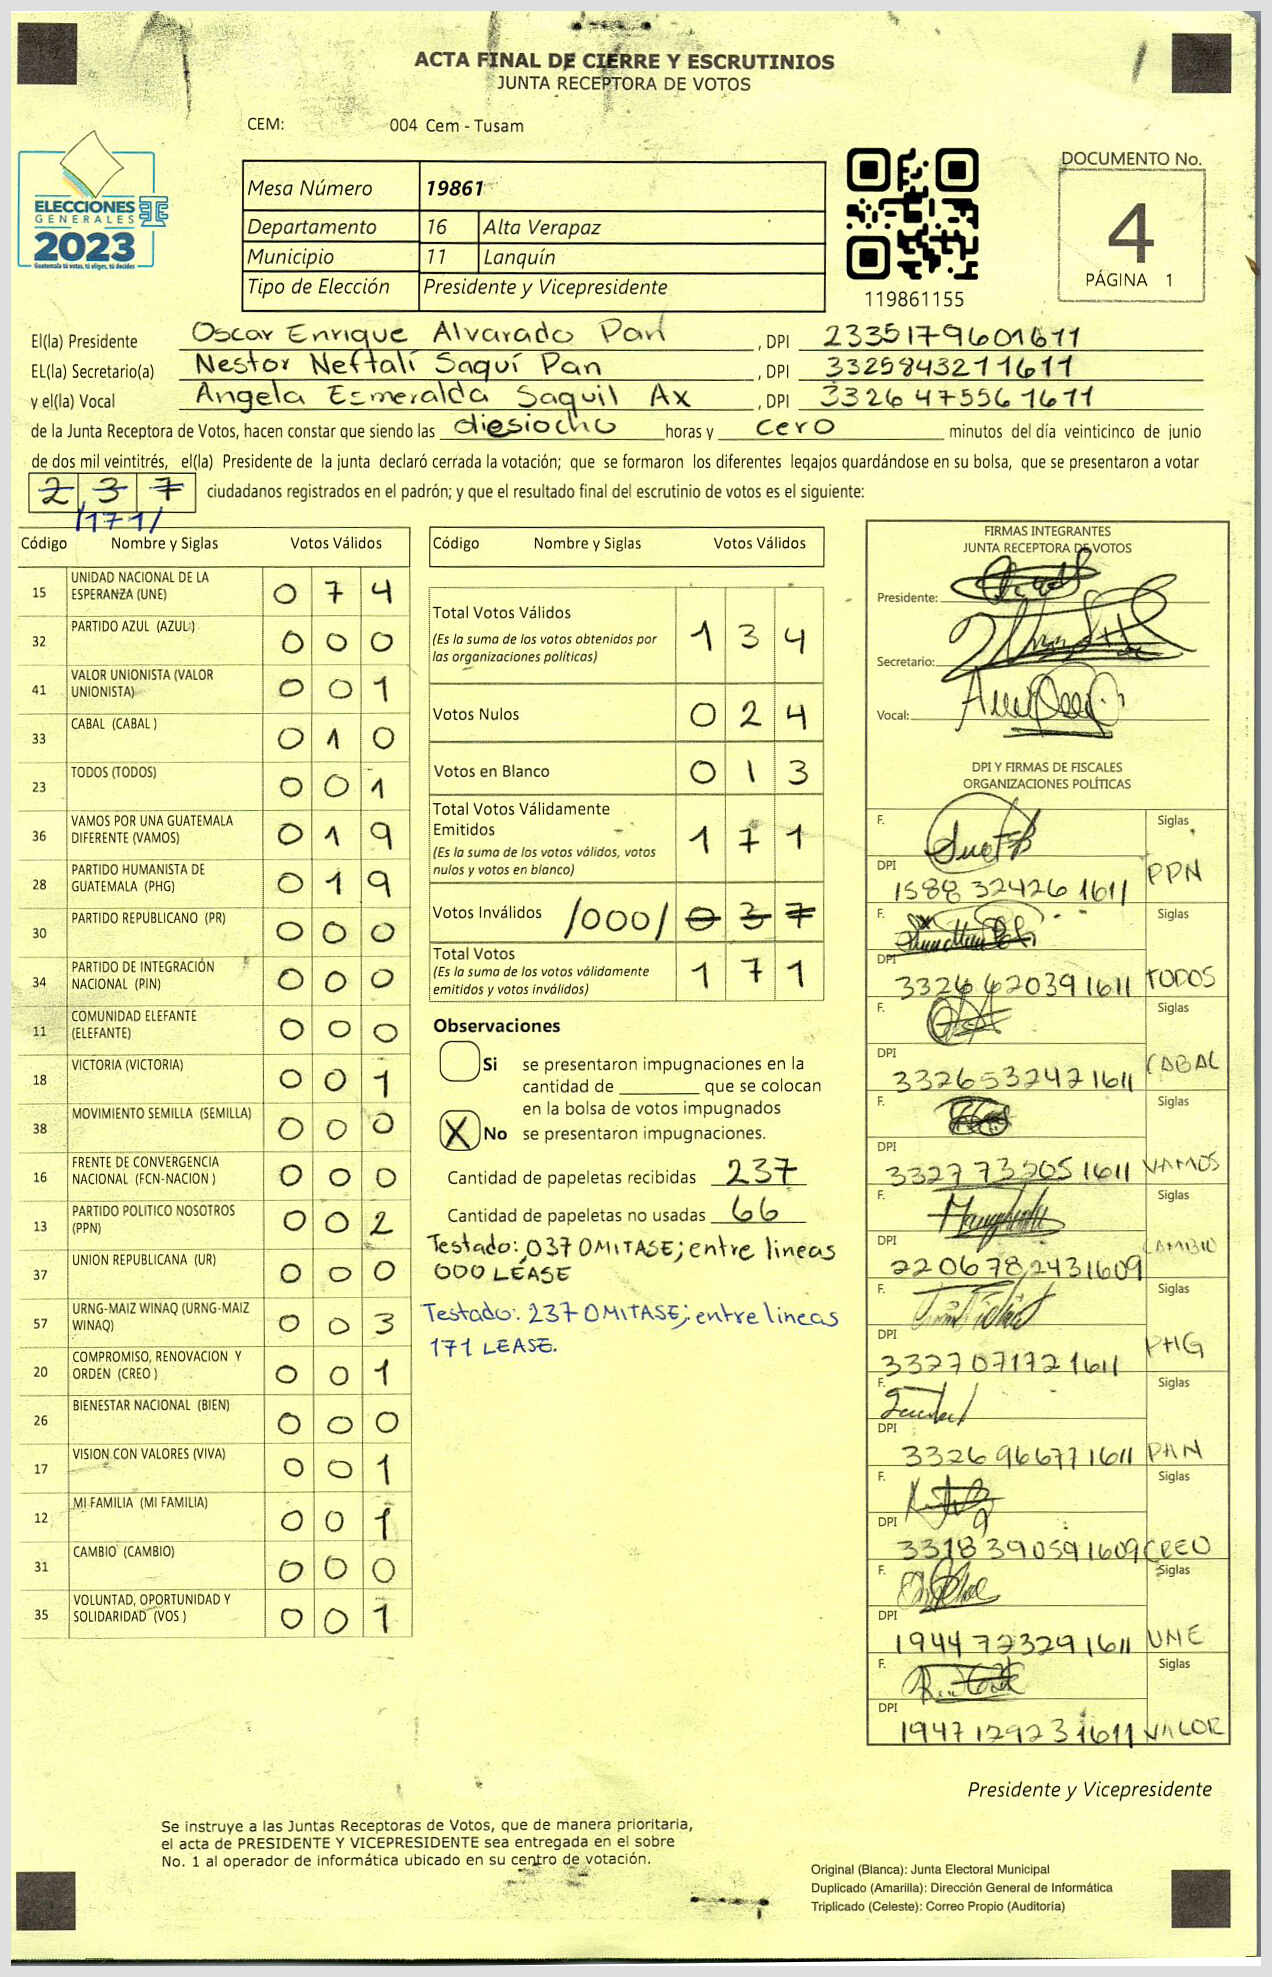 ACTA FINAL DE CIERRE Y ESCRUTINIOS
JUNTA RECEPTORA DE VOTOS
CEM: 004 Cem - Tusam
ELECCIONES
GENERALES
2023
Guatemala tú votas, tú eliges, tú decides
Mesa Número 19861
Departamento 16 Alta Verapaz
Municipio 11 Lanquín
Tipo de Elección Presidente y Vicepresidente
119861155
DOCUMENTO No.
4
PÁGINA 1
El(la) Presidente Oscar Enrique Alvarado Pan, DPI 2335179601611
EL(la) Secretario(a) Nestor Neftalí Saquí Pan, DPI 3325843211611
y el(la) Vocal Angela Esmeralda Saquil Ax, DPI 3326475561611
de la Junta Receptora de Votos, hacen constar que siendo las diesiocho horas y cero minutos del día veinticinco de junio
de dos mil veintitrés, el(la) Presidente de la junta declaró cerrada la votación; que se formaron los diferentes legajos guardándose en su bolsa, que se presentaron a votar
237 ciudadanos registrados en el padrón; y que el resultado final del escrutinio de votos es el siguiente:
/171/
Código Nombre y Siglas Votos Válidos
15 UNIDAD NACIONAL DE LA ESPERANZA (UNE) 0 7 4
32 PARTIDO AZUL (AZUL) 0 0 0
41 VALOR UNIONISTA (VALOR UNIONISTA) 0 0 1
33 CABAL (CABAL ) 0 1 0
23 TODOS (TODOS) 0 0 1
36 VAMOS POR UNA GUATEMALA DIFERENTE (VAMOS) 0 1 9
28 PARTIDO HUMANISTA DE GUATEMALA (PHG) 0 1 9
30 PARTIDO REPUBLICANO (PR) 0 0 0
34 PARTIDO DE INTEGRACIÓN NACIONAL (PIN) 0 0 0
11 COMUNIDAD ELEFANTE (ELEFANTE) 0 0 0
18 VICTORIA (VICTORIA) 0 0 1
38 MOVIMIENTO SEMILLA (SEMILLA) 0 0 0
16 FRENTE DE CONVERGENCIA NACIONAL (FCN-NACION ) 0 0 0
13 PARTIDO POLITICO NOSOTROS (PPN) 0 0 2
37 UNION REPUBLICANA (UR) 0 0 0
57 URNG-MAIZ WINAQ (URNG-MAIZ WINAQ) 0 0 3
20 COMPROMISO, RENOVACION Y ORDEN (CREO ) 0 0 1
26 BIENESTAR NACIONAL (BIEN) 0 0 0
17 VISION CON VALORES (VIVA) 0 0 1
12 MI FAMILIA (MI FAMILIA) 0 0 1
31 CAMBIO (CAMBIO) 0 0 0
35 VOLUNTAD, OPORTUNIDAD Y SOLIDARIDAD (VOS ) 0 0 1
Código Nombre y Siglas Votos Válidos
Total Votos Válidos
(Es la suma de los votos obtenidos por
las organizaciones políticas) 1 3 4
Votos Nulos 0 2 4
Votos en Blanco 0 1 3
Total Votos Válidamente
Emitidos
(Es la suma de los votos válidos, votos
nulos y votos en blanco) 1 7 1
Votos Inválidos /000/ 0 3 7
Total Votos
(Es la suma de los votos válidamente
emitidos y votos inválidos) 1 7 1
Observaciones
Si se presentaron impugnaciones en la
cantidad de ________ que se colocan
en la bolsa de votos impugnados
X No se presentaron impugnaciones.
Cantidad de papeletas recibidas 237
Cantidad de papeletas no usadas 66
Testado: 037 OMITASE; entre lineas
000 LÉASE
Testado: 237 OMITASE; entre lineas
171 LEASE.
FIRMAS INTEGRANTES
JUNTA RECEPTORA DE VOTOS
Presidente:
Secretario:
Vocal:
DPI Y FIRMAS DE FISCALES
ORGANIZACIONES POLÍTICAS
F. Siglas
DPI 1588 32426 1611 PPN
F. Siglas
DPI 3326 42039 1611 TODOS
F. Siglas
DPI 3326532421611 CABAL
F. Siglas
DPI 3327 73205 1611 VAMOS
F. Siglas
DPI 2206782431609 CAMBIO
F. Siglas
DPI 3327071721611 PHG
F. Siglas
DPI 3326966771611 PAN
F. Siglas
DPI 3318390591609 CREO
F. Siglas
DPI 1944723291611 UNE
F. Siglas
DPI 1947129231611 VALOR
Presidente y Vicepresidente
Se instruye a las Juntas Receptoras de Votos, que de manera prioritaria,
el acta de PRESIDENTE Y VICEPRESIDENTE sea entregada en el sobre
No. 1 al operador de informática ubicado en su centro de votación.
Original (Blanca): Junta Electoral Municipal
Duplicado (Amarilla): Dirección General de Informática
Triplicado (Celeste): Correo Propio (Auditoría)